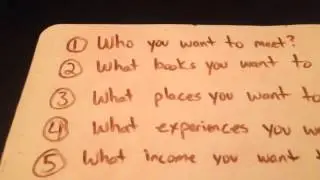 1 Who you want to meet?
2 What books you want to
3 What places you want to
4 What experiences you
5 What income you want